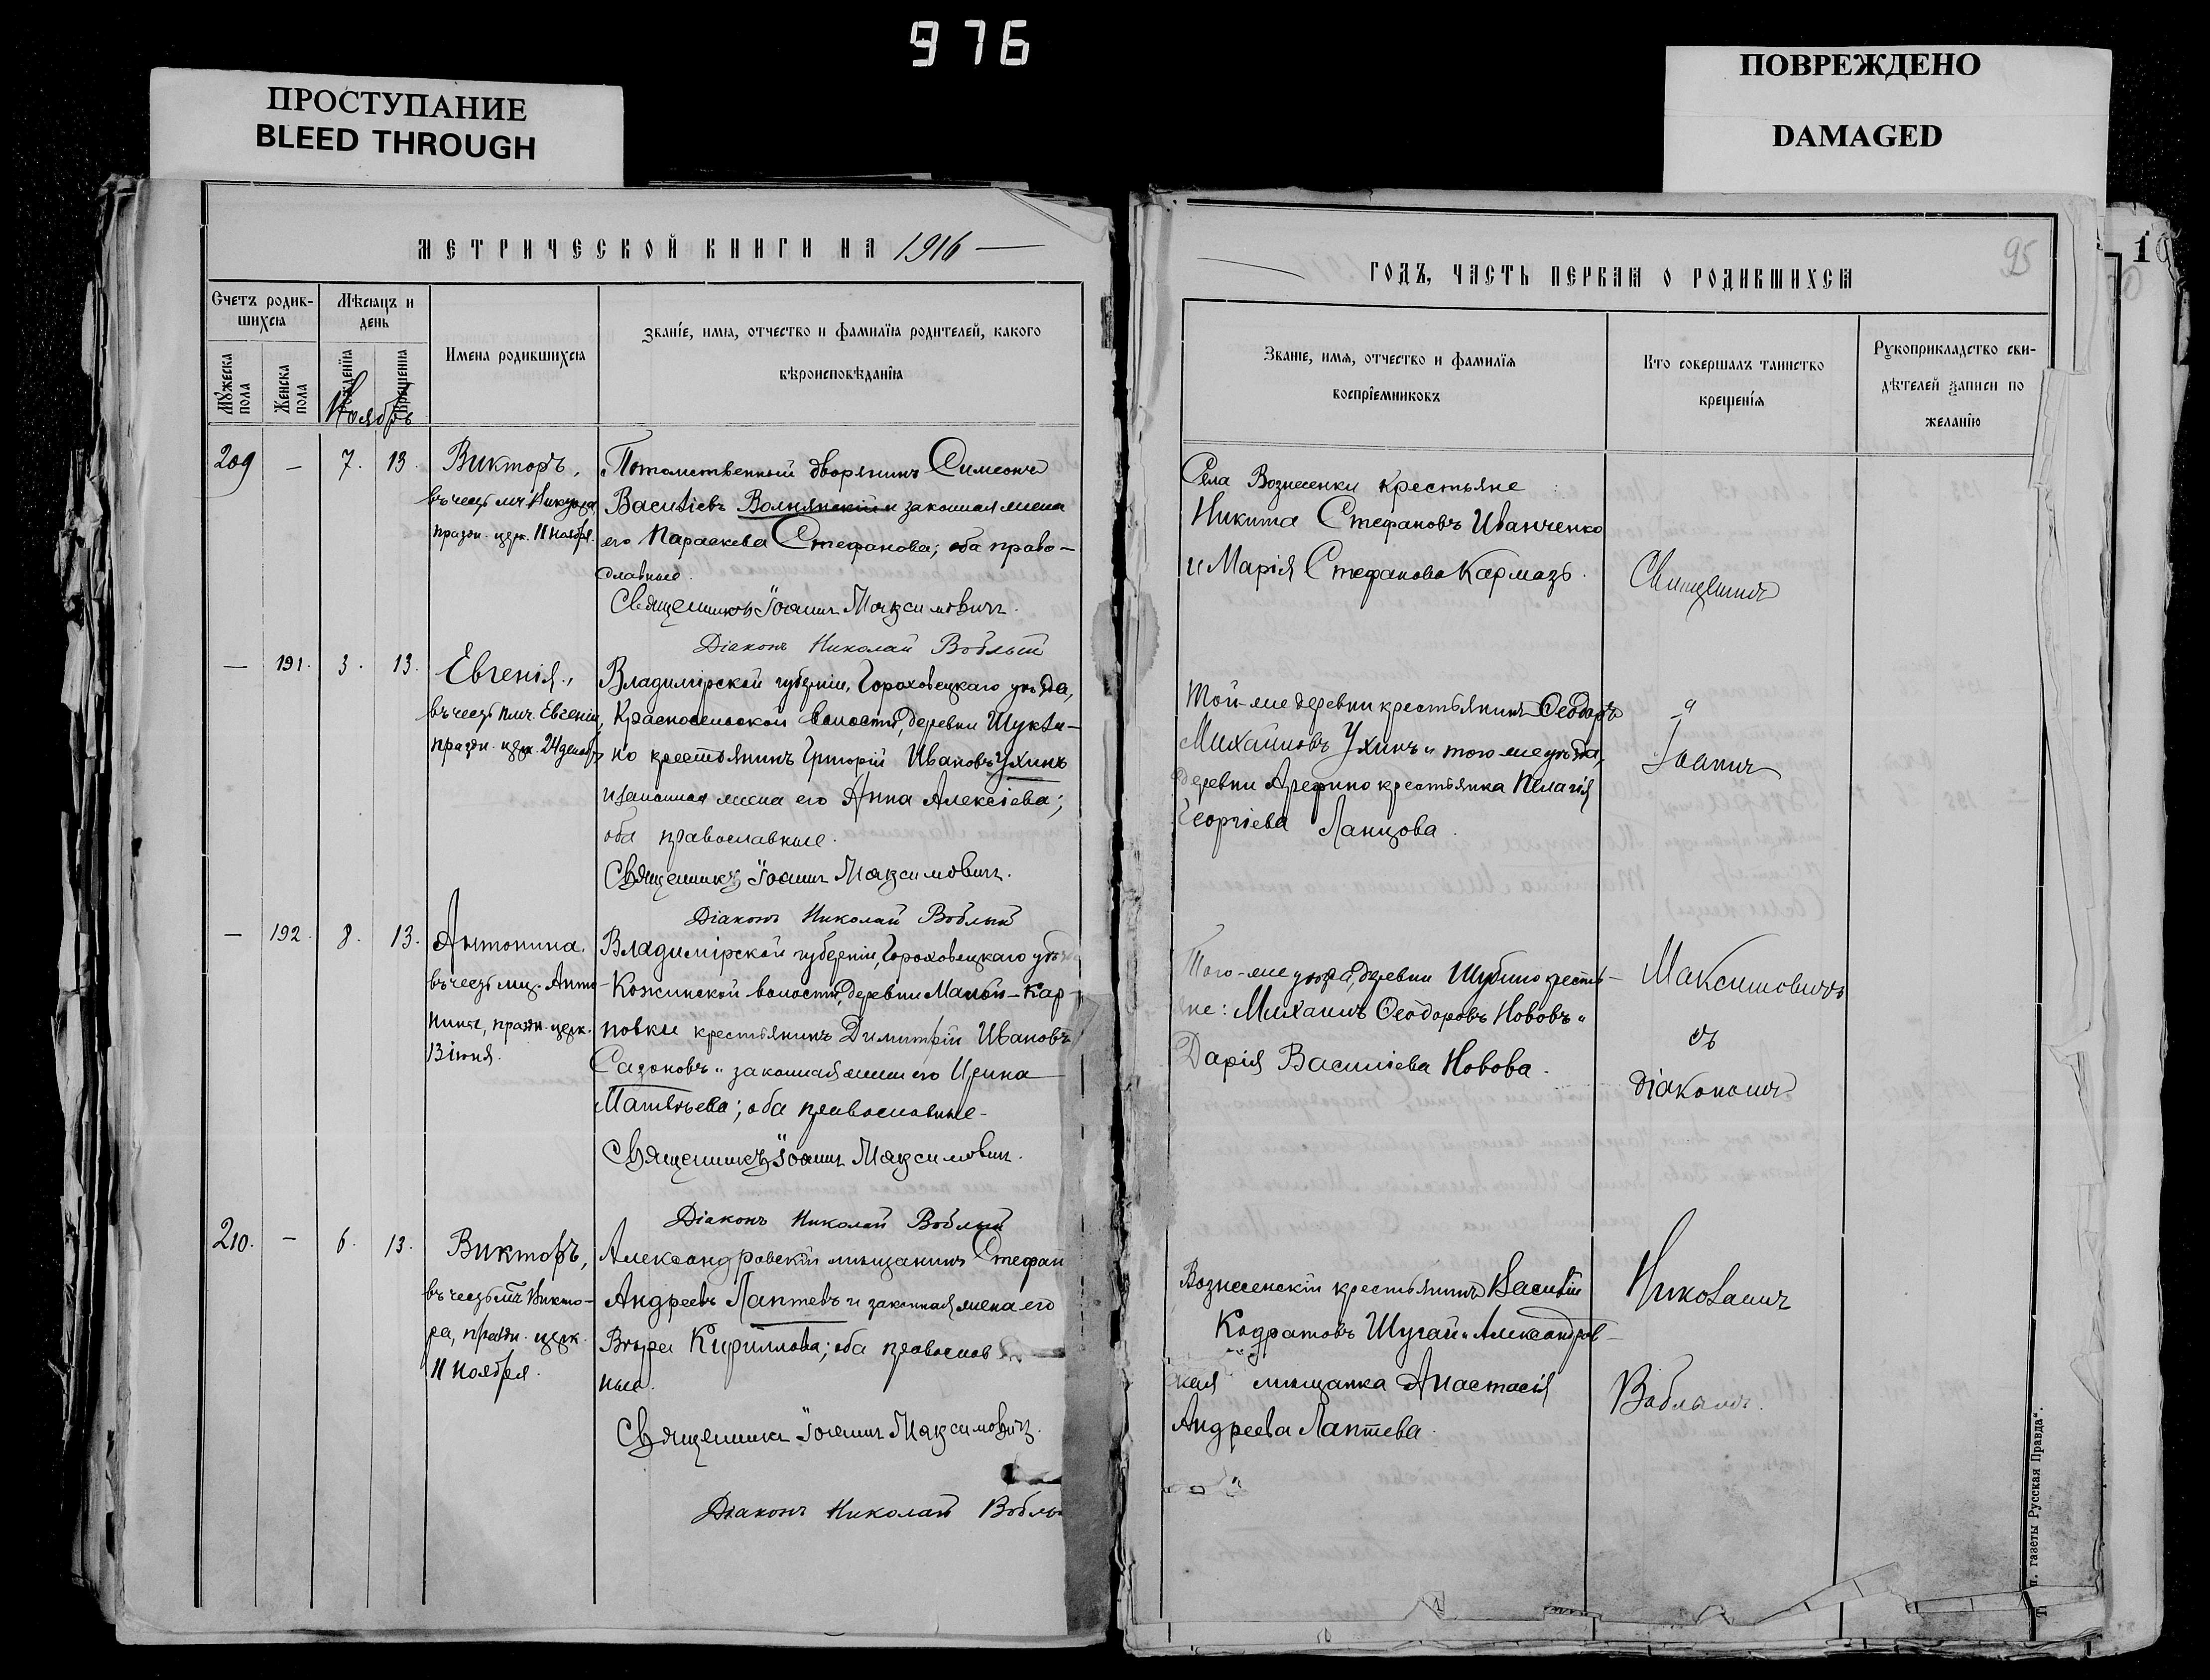 976
ПРОСТУПАНИЕ
BLEED THROUGH
ПОВРЕЖДЕНО
DAMAGED
МЕТРИЧЕСКОЙ КНИГИ НА 1916 —
Счетъ родив-
шихся
Мѣсяцъ и
день
Мужеска
пола
Женска
пола
рожденія
крещенія
Ноябрь
Имена родившихся
Званіе, имя, отчество и фамилія родителей, какого
вѣроисповѣданія
209 — 7. 13. Викторъ,
въ честь мч. Виктора
праздн. церк. 11 Ноября.
Потомственный дворянинъ Симеонъ
Василіевъ Волнянскій и законная жена
его Параскева Стефанова; оба право-
славные.
Священникъ Іоаннъ Максимовичъ.
Діаконъ Николай Воблый
— 191. 3. 13. Евгенія,
въ честь прмч. Евгеніи,
праздн. церк. 24 декабр.
Владимірской губерніи, Гороховецкаго уѣзда,
Красносельской волости, деревни Шукли-
но крестьянинъ Григорій Ивановъ Ухинъ
и законная жена его Анна Алексіева;
оба православные.
Священникъ Іоаннъ Максимовичъ.
Діаконъ Николай Воблый
— 192. 8. 13. Антонина.
въ честь мц. Анто-
нины, праздн. церк.
13 іюня.
Владимірской губерніи, Гороховецкаго уѣз
Кожинской волости, деревни Малой-Кар-
повки крестьянинъ Димитрій Ивановъ
Сазоновъ и законная жена его Ирина
Матвѣева; оба православные.
Священникъ Іоаннъ Максимовичъ.
Діаконъ Николай Воблый
210. — 6. 13. Викторъ,
въ честь мч. Викто-
ра, праздн. церк.
11 Ноября.
Александровскій мѣщанинъ Стефан
Андреевъ Лаптевъ и законная жена его
Вѣра Кириллова; оба правослов
ные.
Священникъ Іоаннъ Максимовичъ.
Діаконъ Николай Вобл
95
ГОДЪ, ЧАСТЬ ПЕРВАЯ О РОДИВШИХСЯ
Званіе, имя, отчество и фамилія
воспріемниковъ
Кто совершалъ таинство
крещенія
Рукоприкладство сви-
дѣтелей записи по
желанію
Села Вознесенки крестьяне:
Никита Стефановъ Иванченко
и Марія Стефанова Кармазъ.
Той-же деревни крестьянинъ Ѳеодоръ
Михайловъ Ухинъ и того-же уѣзда,
деревни Арефино крестьянка Пелагія
Георгіева Ланцова.
Того-же уѣзда, деревни Шубино кресть-
яне: Михаилъ Ѳеодоровъ Нововъ и
Дарія Василіева Новова.
Вознесенскій крестьянинъ Василій
Кодратовъ Шугай и Александров-
ская мѣщанка Анастасія
Андреева Лаптева.
Священникъ
Іоаннъ
Максимовичъ
съ
діакономъ
Николаемъ
Воблымъ.
п. газеты Русская Правда".
10